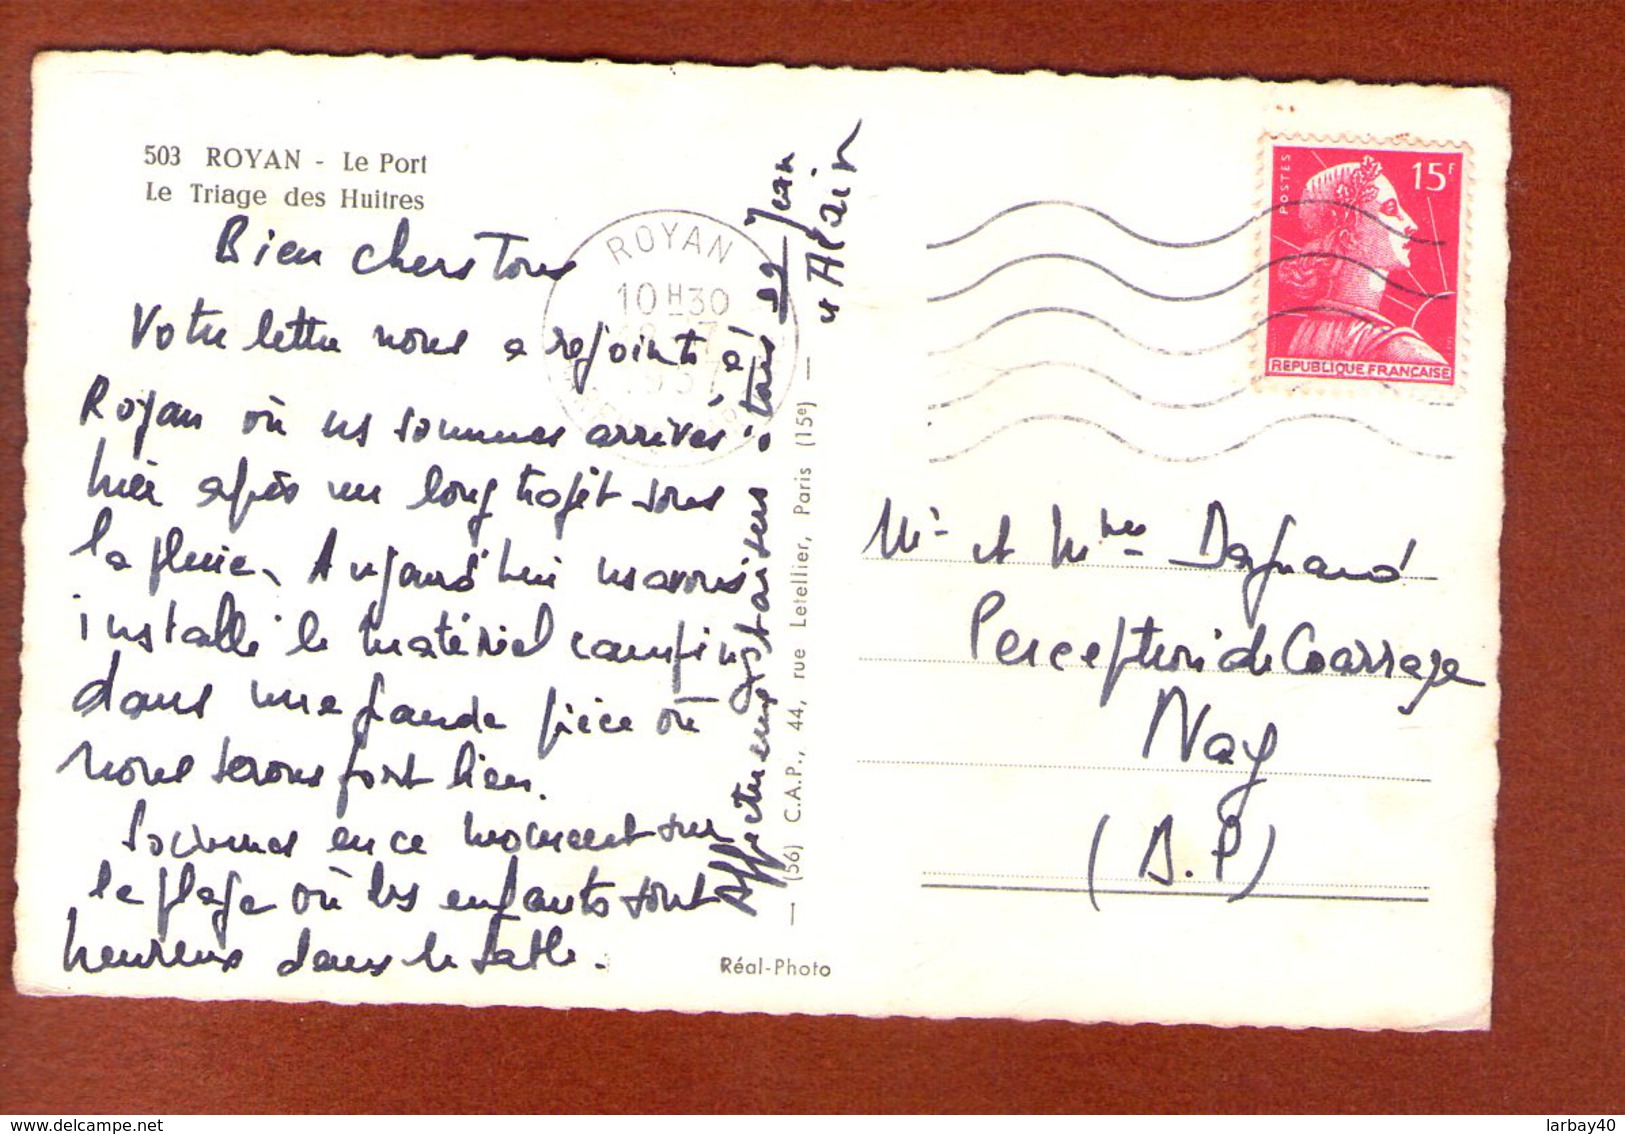 503 ROYAN - Le Port
Le Triage des Huitres
Bien chers Tous
Votre lettre nous a rejoints à
Royan où ns sommes arrivés
hier après un long trajet sous
la pluie. Aujourd'hui ns avons
installé le matériel camping
dans une grande pièce où
nous serons fort bien.
Sommes en ce moment sur
la plage où les enfants sont
heureux dans le sable.
Affectueuses
à tous
Jean
Alain
ROYAN
10H30
1957
(56) C.A.P., 44, rue Letellier, Paris (15e)
Réal-Photo
POSTES
15F
REPUBLIQUE FRANCAISE
Mr et Mme Dagnaud
Perception de Coarraze
Nay
(B.P)
larbay40